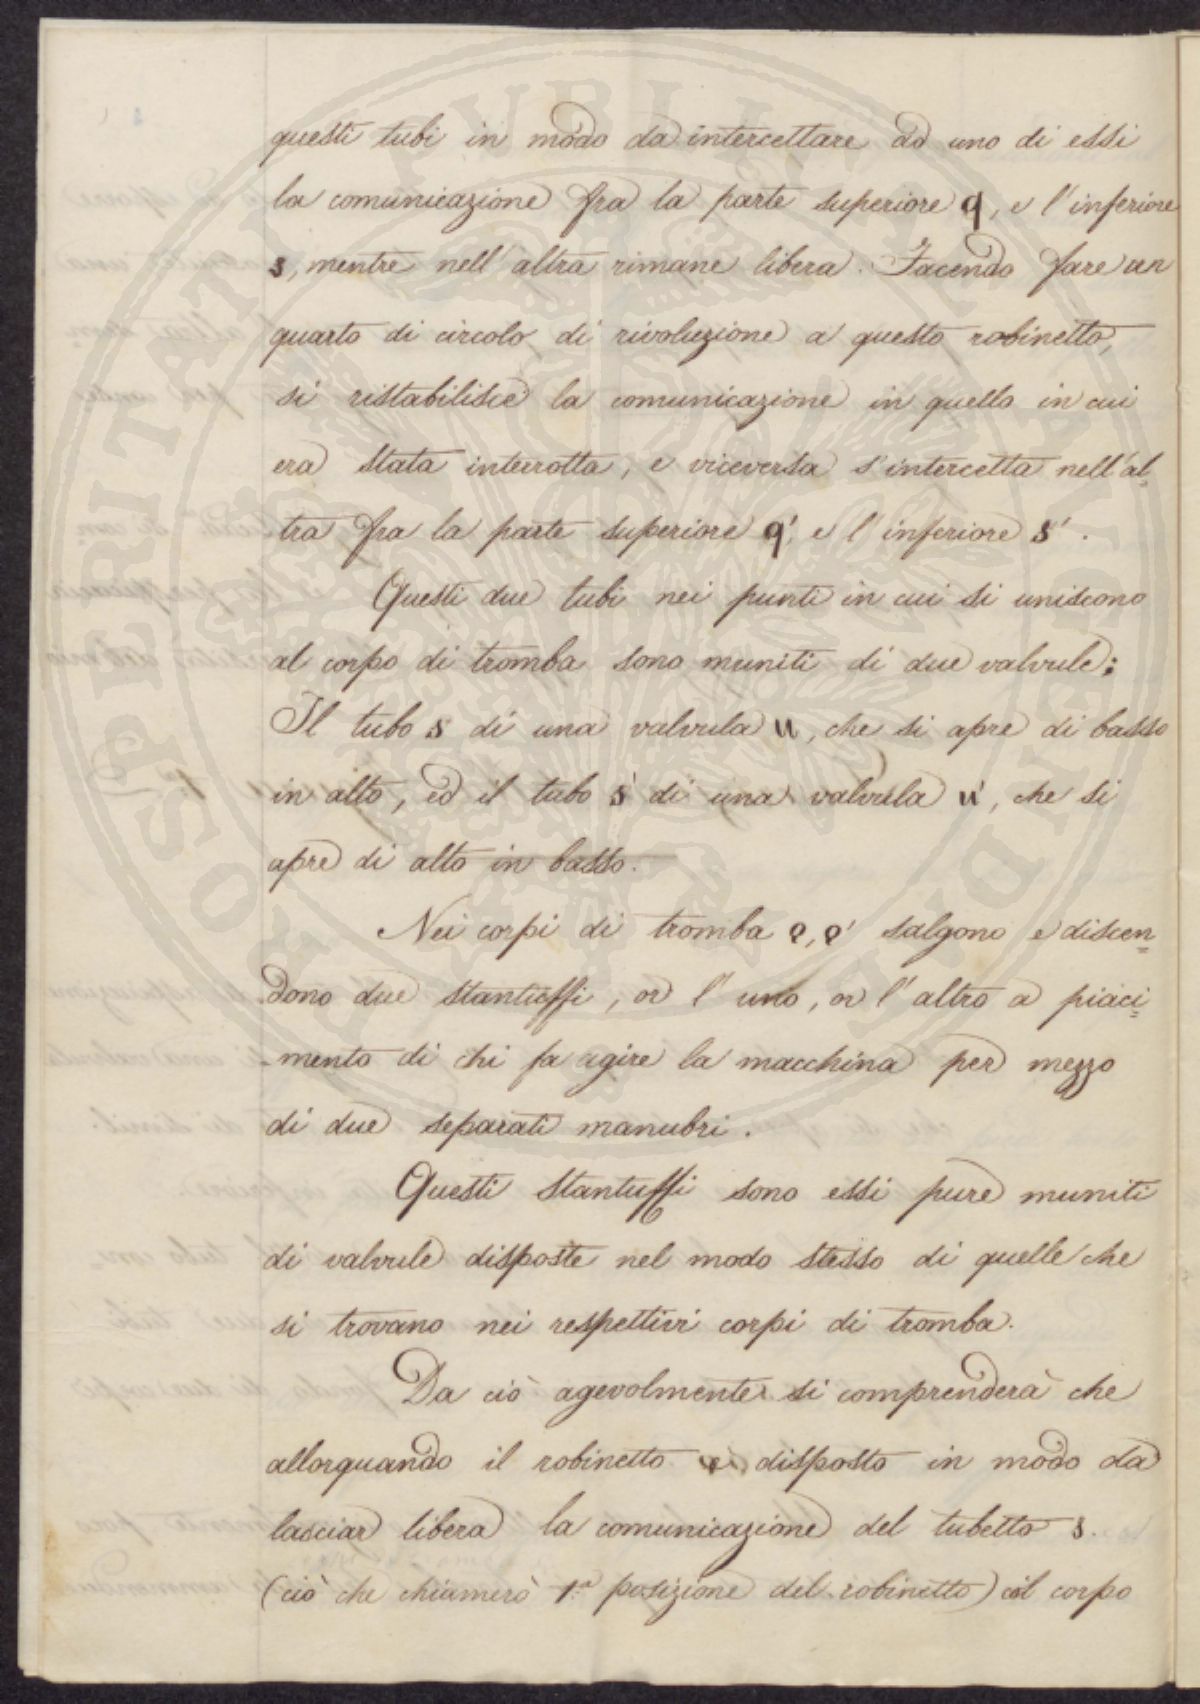 questi tubi in modo da intercettare ad uno di essi
la comunicazione fra la parte superiore q, e l'inferiore
s, mentre nell'altra rimane libera. Facendo fare un
quarto di circolo di rivoluzione a questo robinetto,
si ristabilisce la comunicazione in quello in cui
era stata interrotta, e viceversa s'intercetta nell'al-
tra fra la parte superiore q', e l'inferiore s'.
Questi due tubi nei punti in cui si uniscono
al corpo di tromba sono muniti di due valvule;
Il tubo s di una valvula u, che si apre di basso
in alto, ed il tubo s' di una valvula u', che si
apre di alto in basso.
Nei corpi di tromba e, e' salgono e discen=
dono due stantuffi, or l'uno, or l'altro a piaci=
-mento di chi fa agire la macchina per mezzo
di due separati manubri.
Questi stantuffi sono essi pure muniti
di valvule disposte nel modo stesso di quelle che
si trovano nei respettivi corpi di tromba.
Da ciò agevolmente si comprenderà che
allorquando il robinetto è disposto in modo da
lasciar libera la comunicazione del tubetto s.
(ciò che chiamerò 1.ª posizione del robinetto) il corpo
PROSPERITATI PUBLICAE AUGENDAE